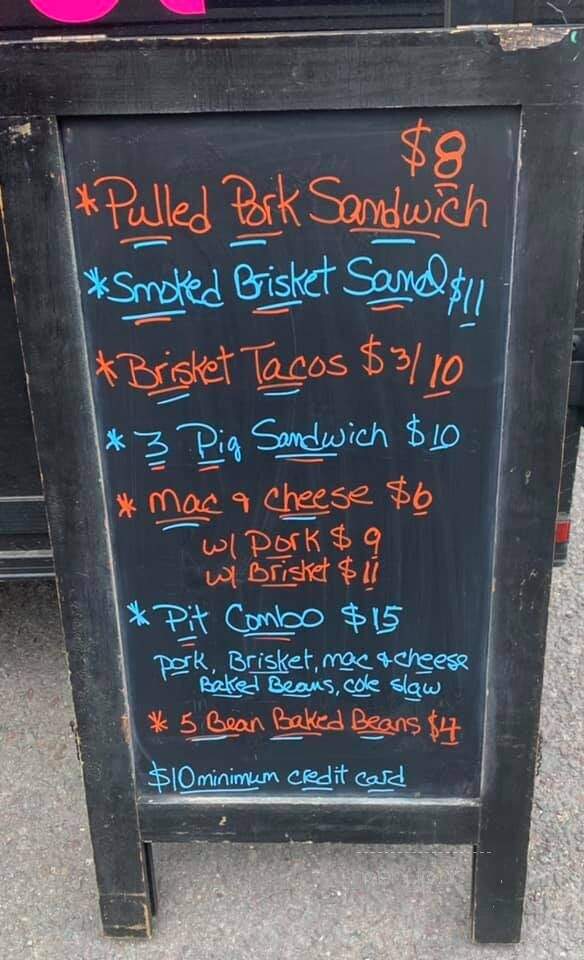 $8
*Pulled Pork Sandwich
*Smoked Brisket Sand $11
*Brisket Tacos $3/10
* 3 Pig Sandwich $10
* mac & cheese $6
w/ Pork $9
w/ Brisket $11
* Pit Combo $15
pork, Brisket, mac & cheese
Baked Beans, cole slaw
* 5 Bean Baked Beans $4
$10 minimum credit card